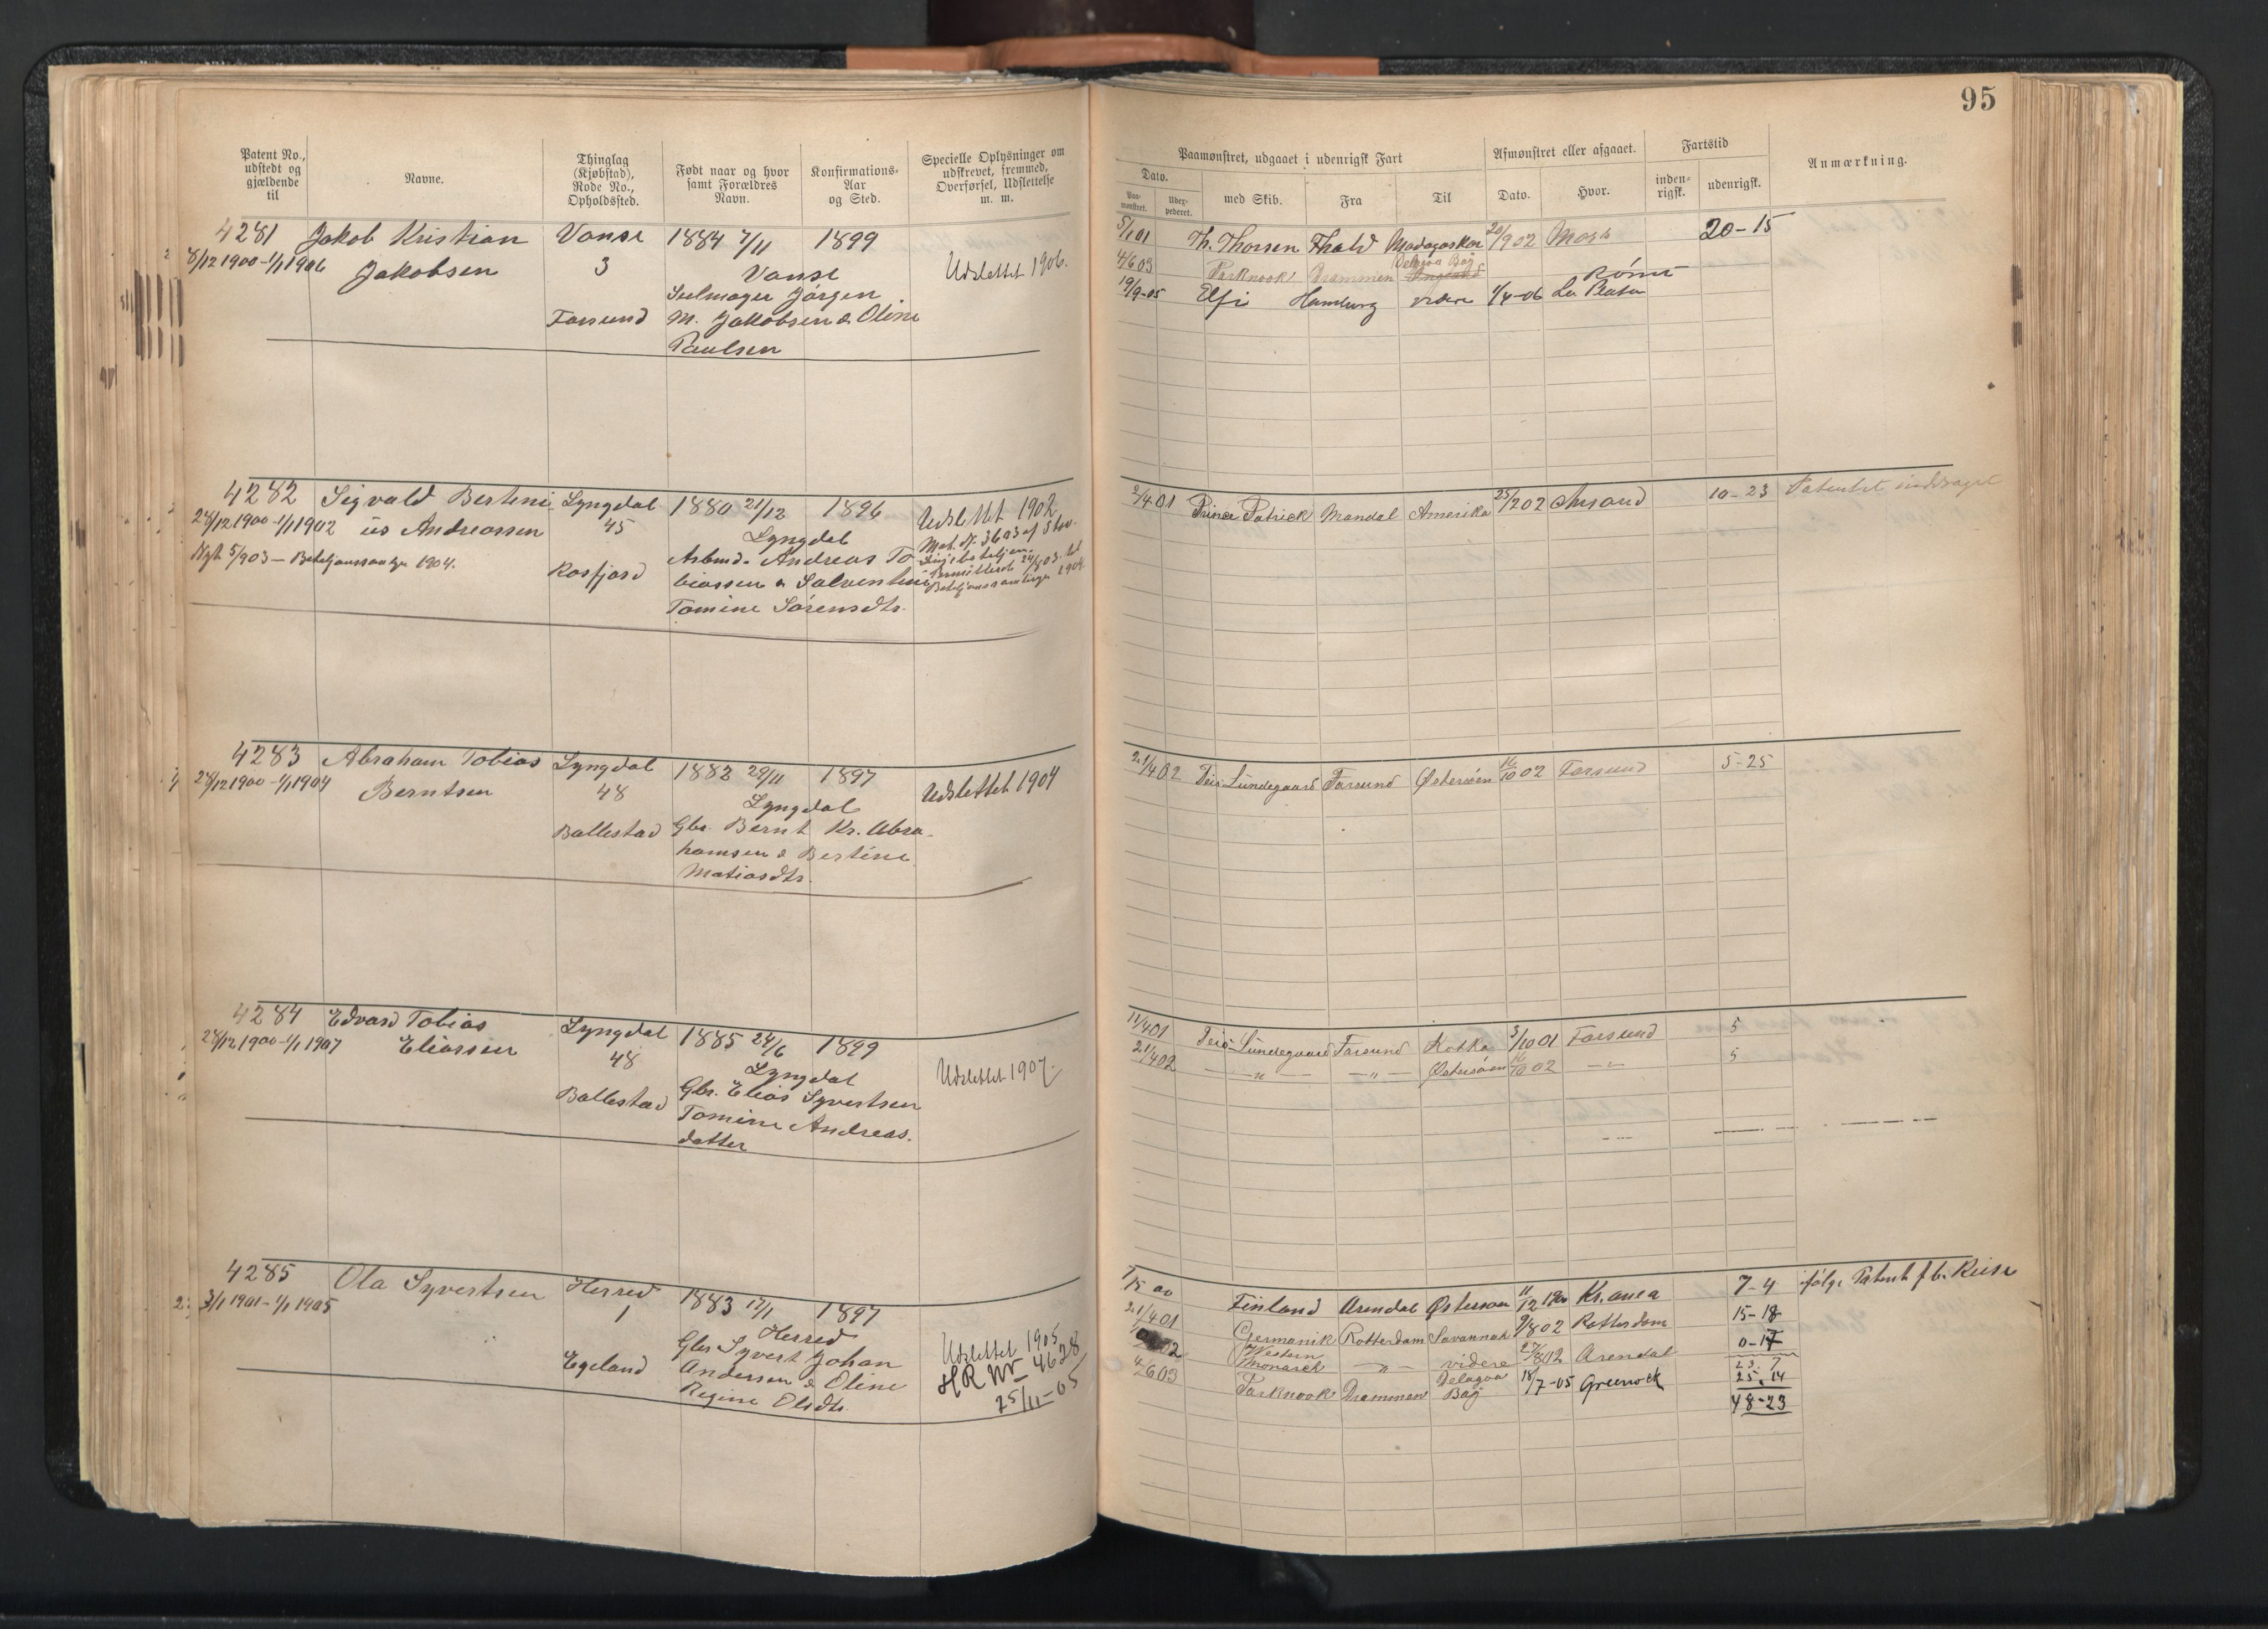 95
Patent No., udstedt og gjældende til
Navne.
Thinglag (Kjøbstad), Rode No., Opholdssted.
Født naar og hvor samt Forældres Navn.
Konfirmations-Aar og Sted.
Specielle Oplysninger om udskrevet, fremmed, Overførsel, Udslettelse m. m.
Paamønstret, udgaaet i udenrigsk Fart
Afmønstret eller afgaaet.
Fartstid
Anmærkning.
Dato.
Paa-mønstret.
Udex-pederet.
med Skib.
Fra
Til
Dato.
Hvor.
inden-rigsk.
udenrigsk.
4281 Jakob Kristian Vanse 1884 7/11 1899
8/12 1900-1/1 1906 Jakobsen 3 Vanse Udslettet 1906.
Seilmager Jørgen
Farsund M. Jakobsen & Oline
Paulsen
5/1 01 Th. Thorsen Madagaskar 20/9 02 Moss 20-15
4/6 03 Parknook Drammen Delagoa Bay England
19/9-05 Elfi Hamburg videre 1/4-06 La Plata Rømt
4282 Sigvald Bertini Lyngdal 1880 21/12 1896 Udslettet 1902
28/12 1900-1/1 1902 us Andreassen 45 Lyngdal
Nyt 5/9 03 - Bataljonssamlgn 1904. Rosfjord Arbmd. Andreas To
biassen &
Tomine Sørensdtr.
2/4 01 Prince Patrick Mandal Amerika 25/2 02 10-23 Patentet inddraget
4283 Abraham Tobias Lyngdal 1882 29/11 1897 Udslettet 1904
28/12 1900-1/1 1904 Berntsen 48 Lyngdal
Ballestad Gbr. Bernt Kr. Abra-
hamsen & Bertine
Matiasdtr.
21/4 02 Lundegaard Farsund Østersøen 16/10 02 Farsund 5-25
4284 Edvard Tobias Lyngdal 1885 24/6 1899
28/12 1900-1/1 1907 Eliassen 48 Lyngdal Udslettet 1907.
Ballestad Gbr. Elias Syvertsen
Tomine Andreas.
datter
11/4 01 Lundegaard Farsund Kotka 3/10 01 Farsund 5
21/4 02 — " — — " — Østersøen 16/10 02 — " — 5
4285 Ola Syvertsen Herred 1883 17/1 1897
3/1 1901-1/1 1905 1 Herred Udslettet 1905
Egeland Gbr Syvert Johan HR Nr 4628
Andersen & Oline 25/11-05
Regine Olsdtr.
1/5 00 Finland Arendal Østersøen 11/12 1900 Kr.ania 7-4 ifølge Patent f b. Reise
21/4 01 Germanik Rotterdam Savannah 9/8 02 Rotterdam 15-18
02 Western Monarch — " — videre 27/8 02 Arendal 0-17
23. 7
4/6 03 Parknook Drammen Delagoa Bay 18/7-05 Greenock 25.14
48-23